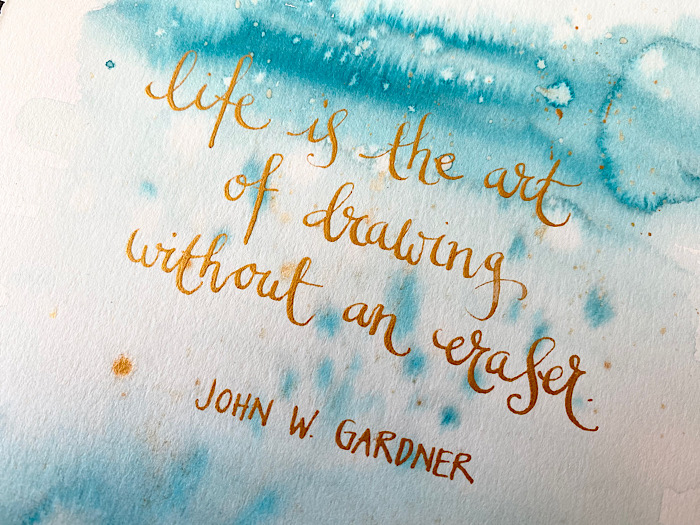 life is the art
of drawing
without an eraser.
JOHN W. GARDNER